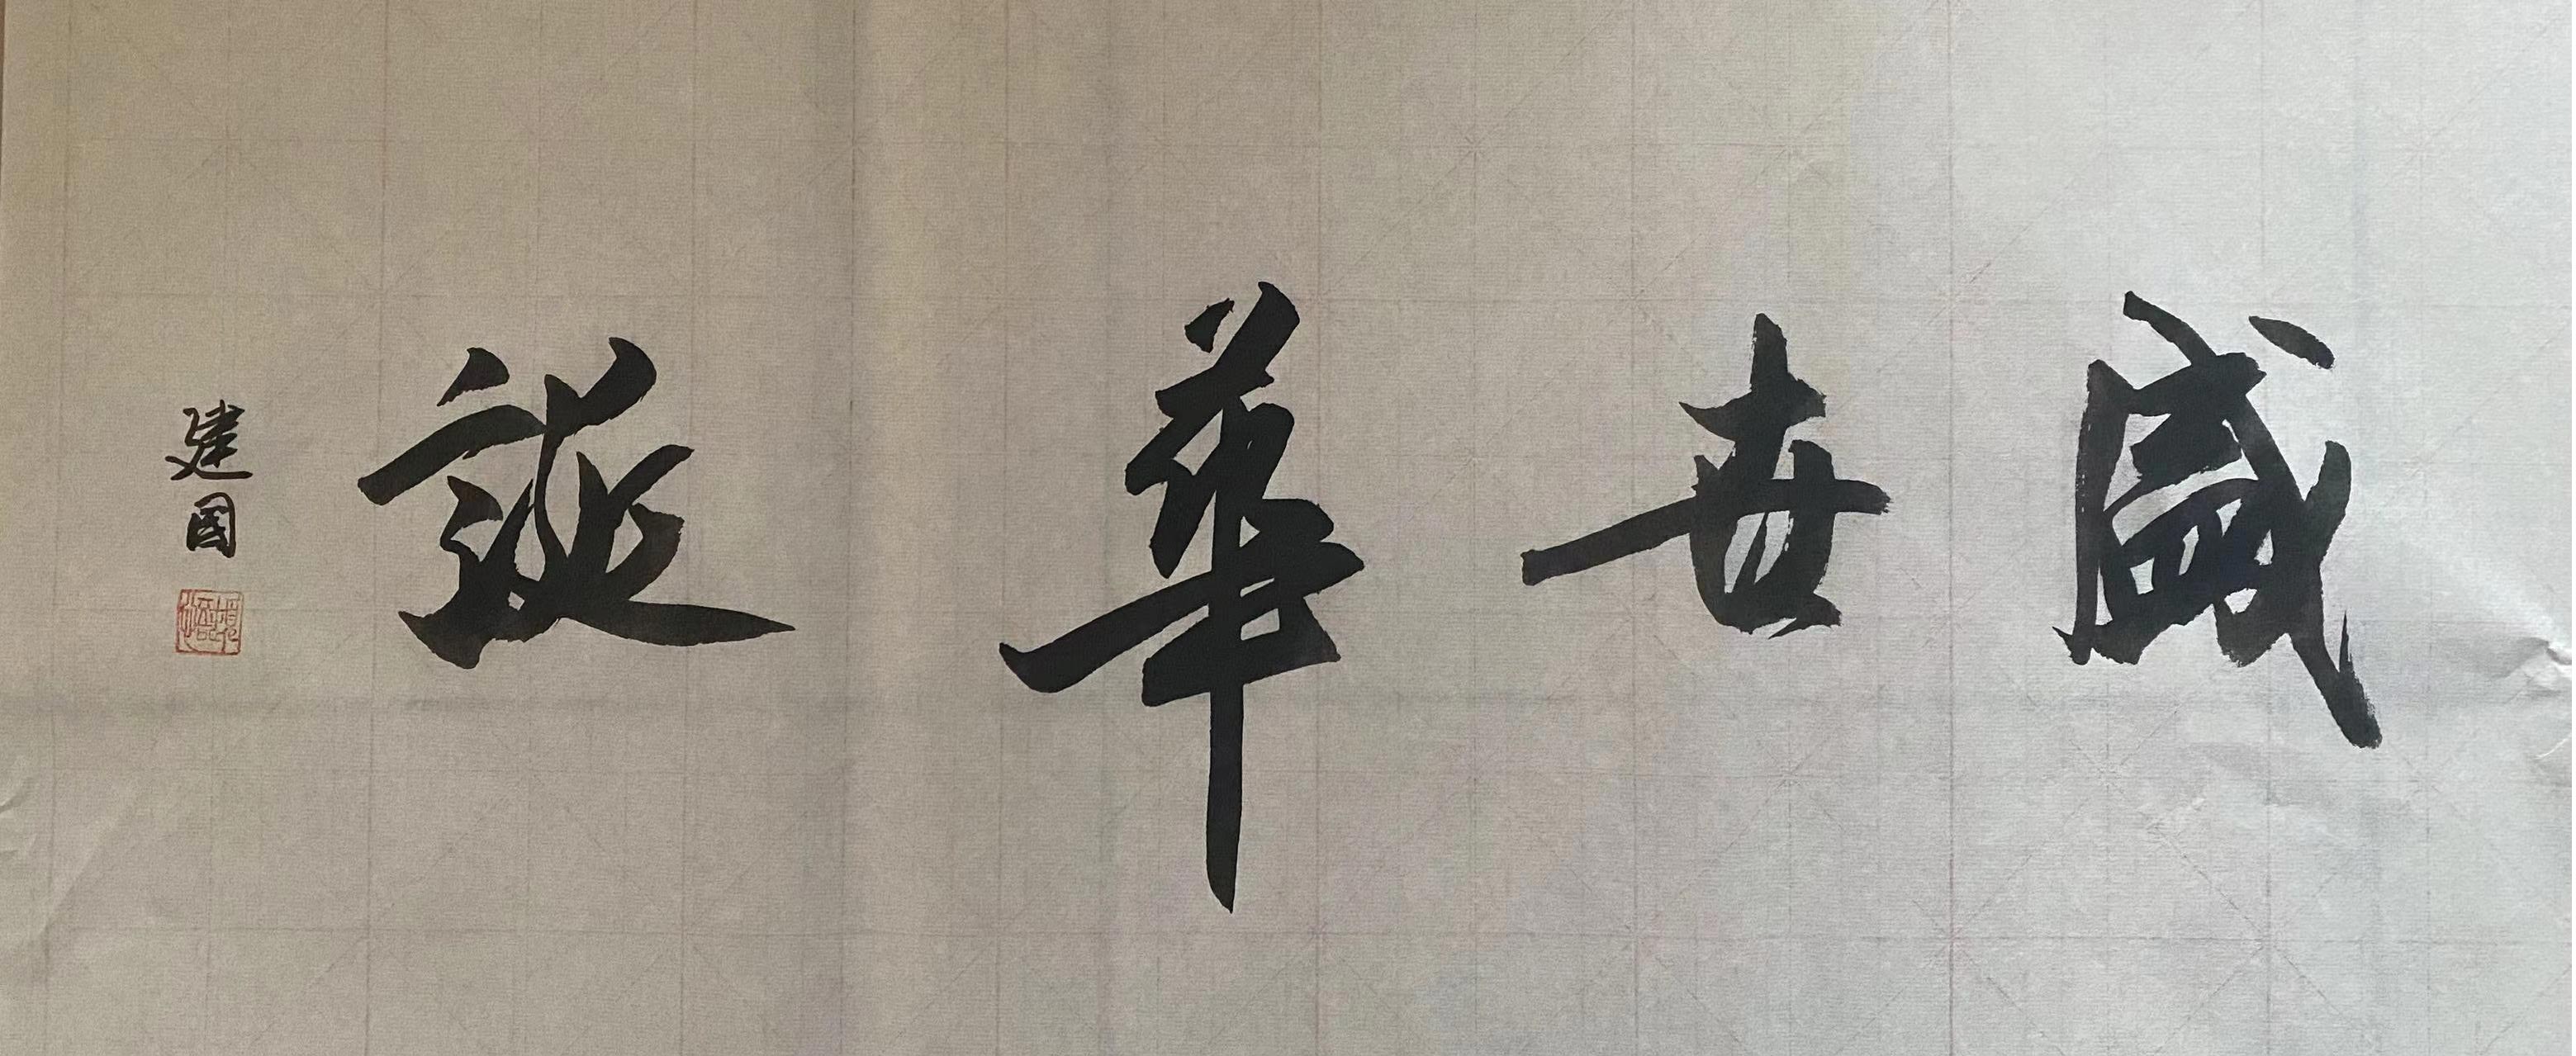 盛世華誕
建國